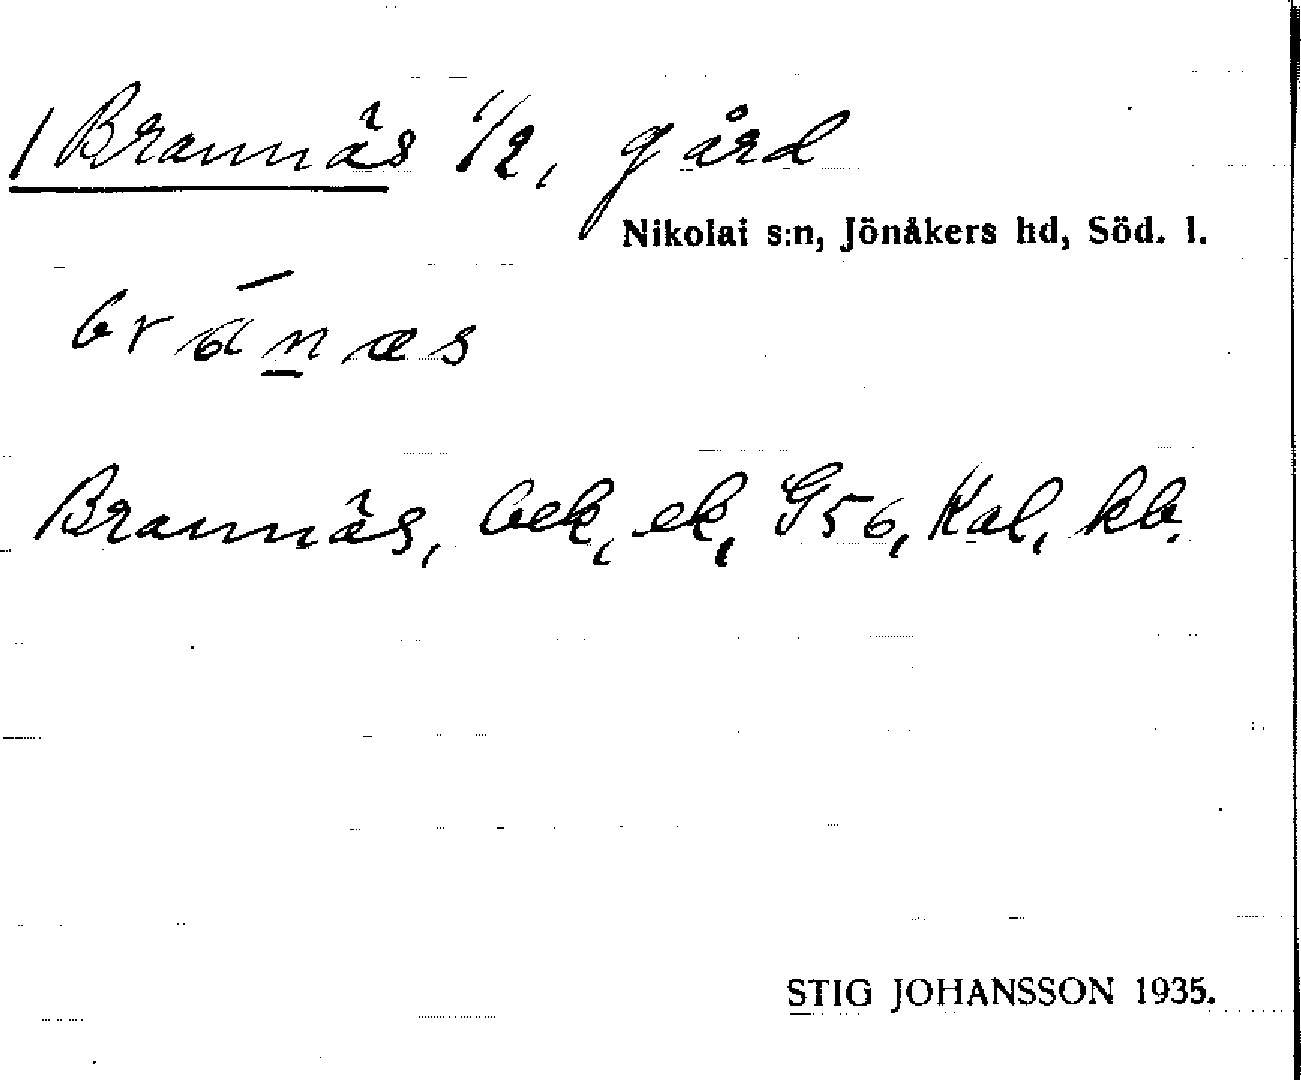 / Brannäs 1/2, gård
Nikolai s:n, Jönåkers hd, Söd. l.
bránæs
Brannäs, bek, ek, G56, Kal, kb.
STIG JOHANSSON 1935.